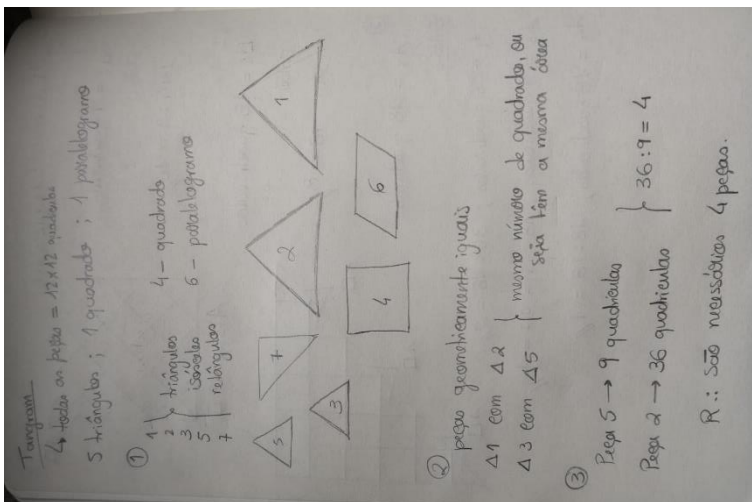 Tangram
↳ todas as peças = 12x12 quadrículas
5 triângulos ; 1 quadrado ; 1 paralelogramo
① 1 2 3 5 7 } triângulos isósceles retângulos
4 - quadrado
6 - paralelogramo
5 3 7 2 1
4 6
② peças geometricamente iguais
Δ1 com Δ2
Δ3 com Δ5 } mesmo número de quadrados, ou
seja têm a mesma área
③ Peça 5 → 9 quadrículas
Peça 2 → 36 quadrículas } 36 : 9 = 4
R.: São necessárias 4 peças.